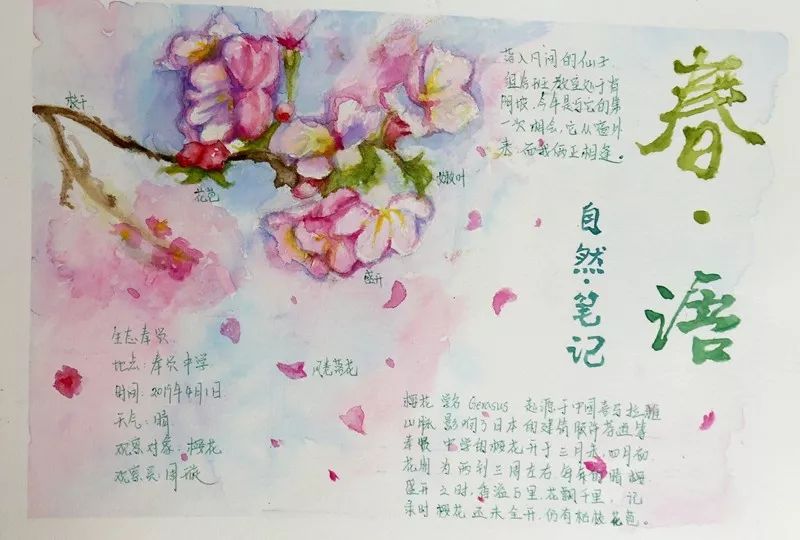 春·语
自然·笔记
落入凡间的仙子
组为班教室处于肯
阿坡.今年是与它的第
一次相会,它从窗外
来,而我俩正相逢。
枝干
花苞
嫩叶
盛开
风壳落花
生态奉贤
地点:奉贤中学
时间:2019年4月1日
天气:晴
观察对象:樱花
观察员:周
樱花 学名 Cerasus 起源于中国喜马拉雅
山脉 影响了日本的建筑服饰茶道等
奉贤中学的樱花开于三月末,四月初
花期为两到三周左右.每年的晴
盛开之时,香溢百里.花飘千里. 记
录时樱花还未全开.仍有花苞。